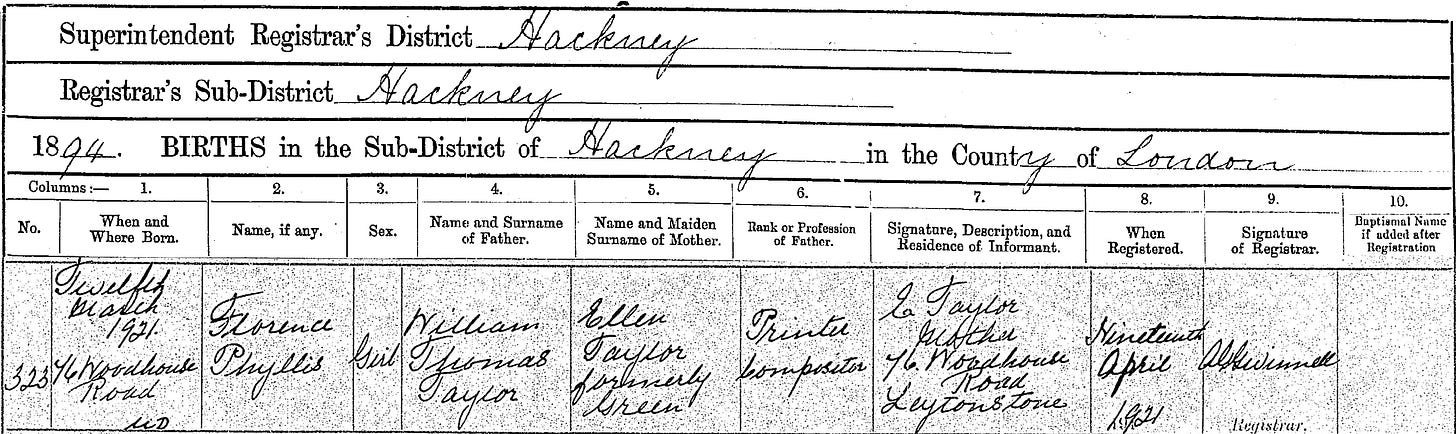 Superintendent Registrar's District Hackney
Registrar's Sub-District Hackney
1894. BIRTHS in the Sub-District of Hackney in the County of London
Columns:— 1. 2. 3. 4. 5. 6. 7. 8. 9. 10.
No. When and Where Born. Name, if any. Sex. Name and Surname of Father. Name and Maiden Surname of Mother. Rank or Profession of Father. Signature, Description, and Residence of Informant. When Registered. Signature of Registrar. Baptismal Name if added after Registration
323
Twelfth
March
1921
76 Woodhouse
Road
Florence
Phyllis
Girl
William
Thomas
Taylor
Ellen
Taylor
formerly
Green
Printer
Compositor
E Taylor
Mother
76 Woodhouse
Road
Leytonstone
Nineteenth
April
1921
Registrar.